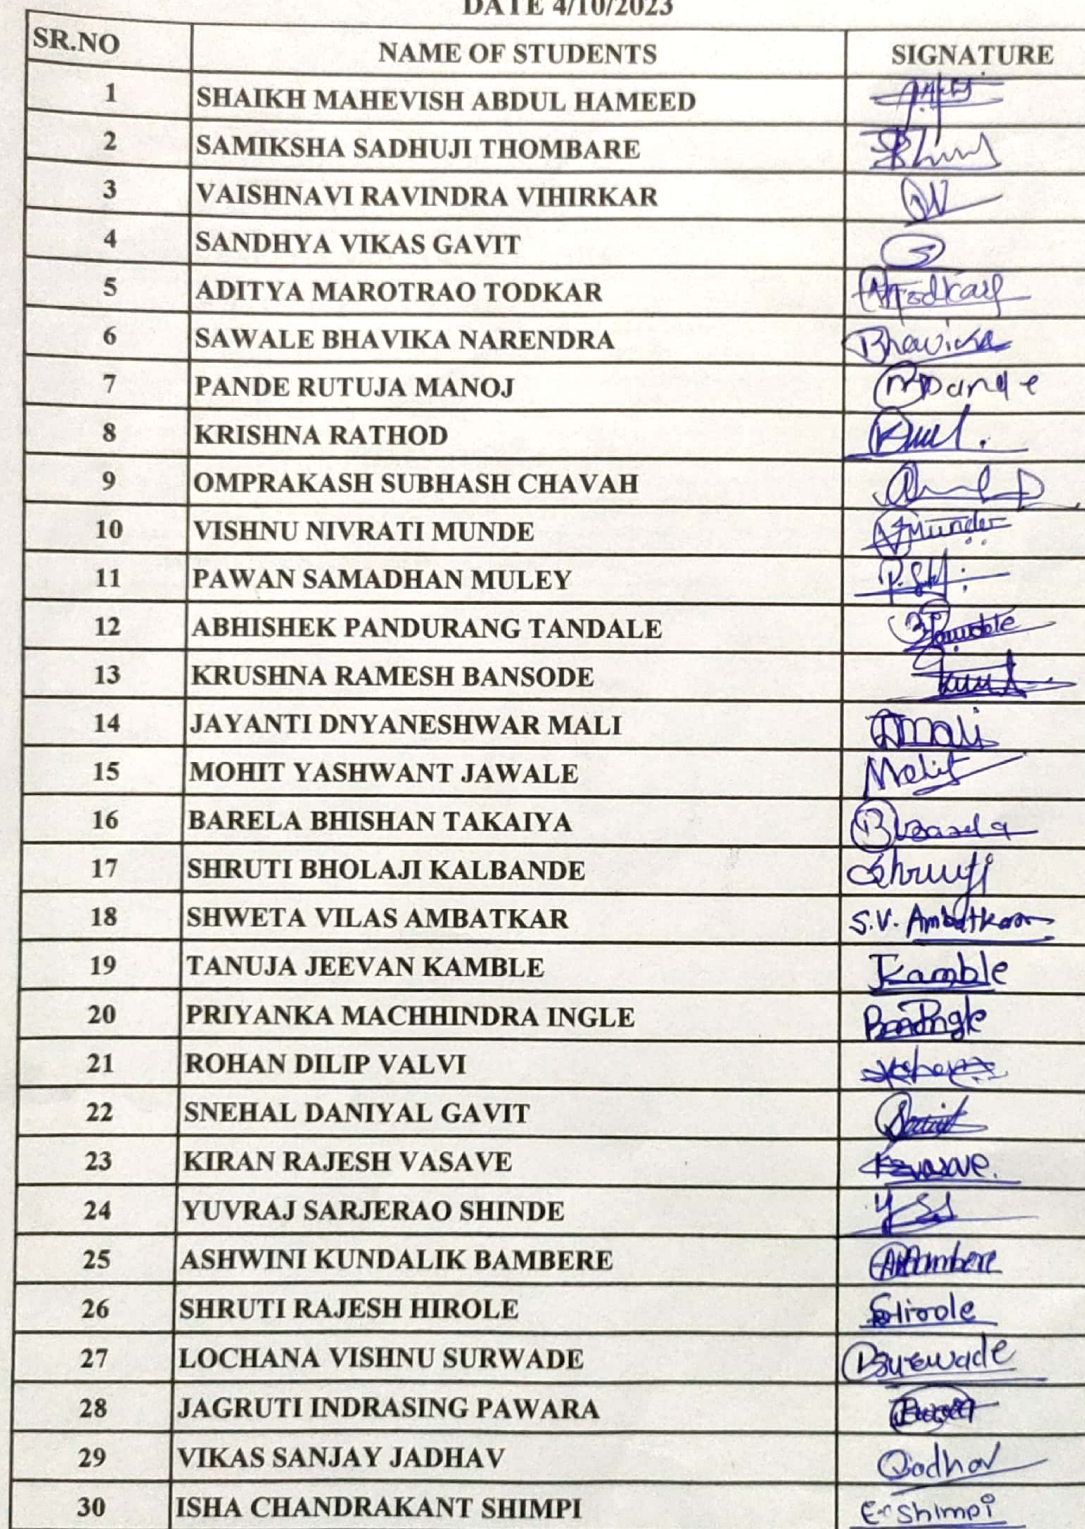 DATE 4/10/2023
SR.NO NAME OF STUDENTS SIGNATURE
1 SHAIKH MAHEVISH ABDUL HAMEED
2 SAMIKSHA SADHUJI THOMBARE
3 VAISHNAVI RAVINDRA VIHIRKAR
4 SANDHYA VIKAS GAVIT
5 ADITYA MAROTRAO TODKAR
6 SAWALE BHAVIKA NARENDRA Bhavika
7 PANDE RUTUJA MANOJ
8 KRISHNA RATHOD
9 OMPRAKASH SUBHASH CHAVAH
10 VISHNU NIVRATI MUNDE
11 PAWAN SAMADHAN MULEY
12 ABHISHEK PANDURANG TANDALE
13 KRUSHNA RAMESH BANSODE
14 JAYANTI DNYANESHWAR MALI
15 MOHIT YASHWANT JAWALE
16 BARELA BHISHAN TAKAIYA
17 SHRUTI BHOLAJI KALBANDE Shruti
18 SHWETA VILAS AMBATKAR S.V. Ambatkar
19 TANUJA JEEVAN KAMBLE Kamble
20 PRIYANKA MACHHINDRA INGLE
21 ROHAN DILIP VALVI
22 SNEHAL DANIYAL GAVIT
23 KIRAN RAJESH VASAVE
24 YUVRAJ SARJERAO SHINDE
25 ASHWINI KUNDALIK BAMBERE
26 SHRUTI RAJESH HIROLE
27 LOCHANA VISHNU SURWADE
28 JAGRUTI INDRASING PAWARA
29 VIKAS SANJAY JADHAV
30 ISHA CHANDRAKANT SHIMPI Shimpi